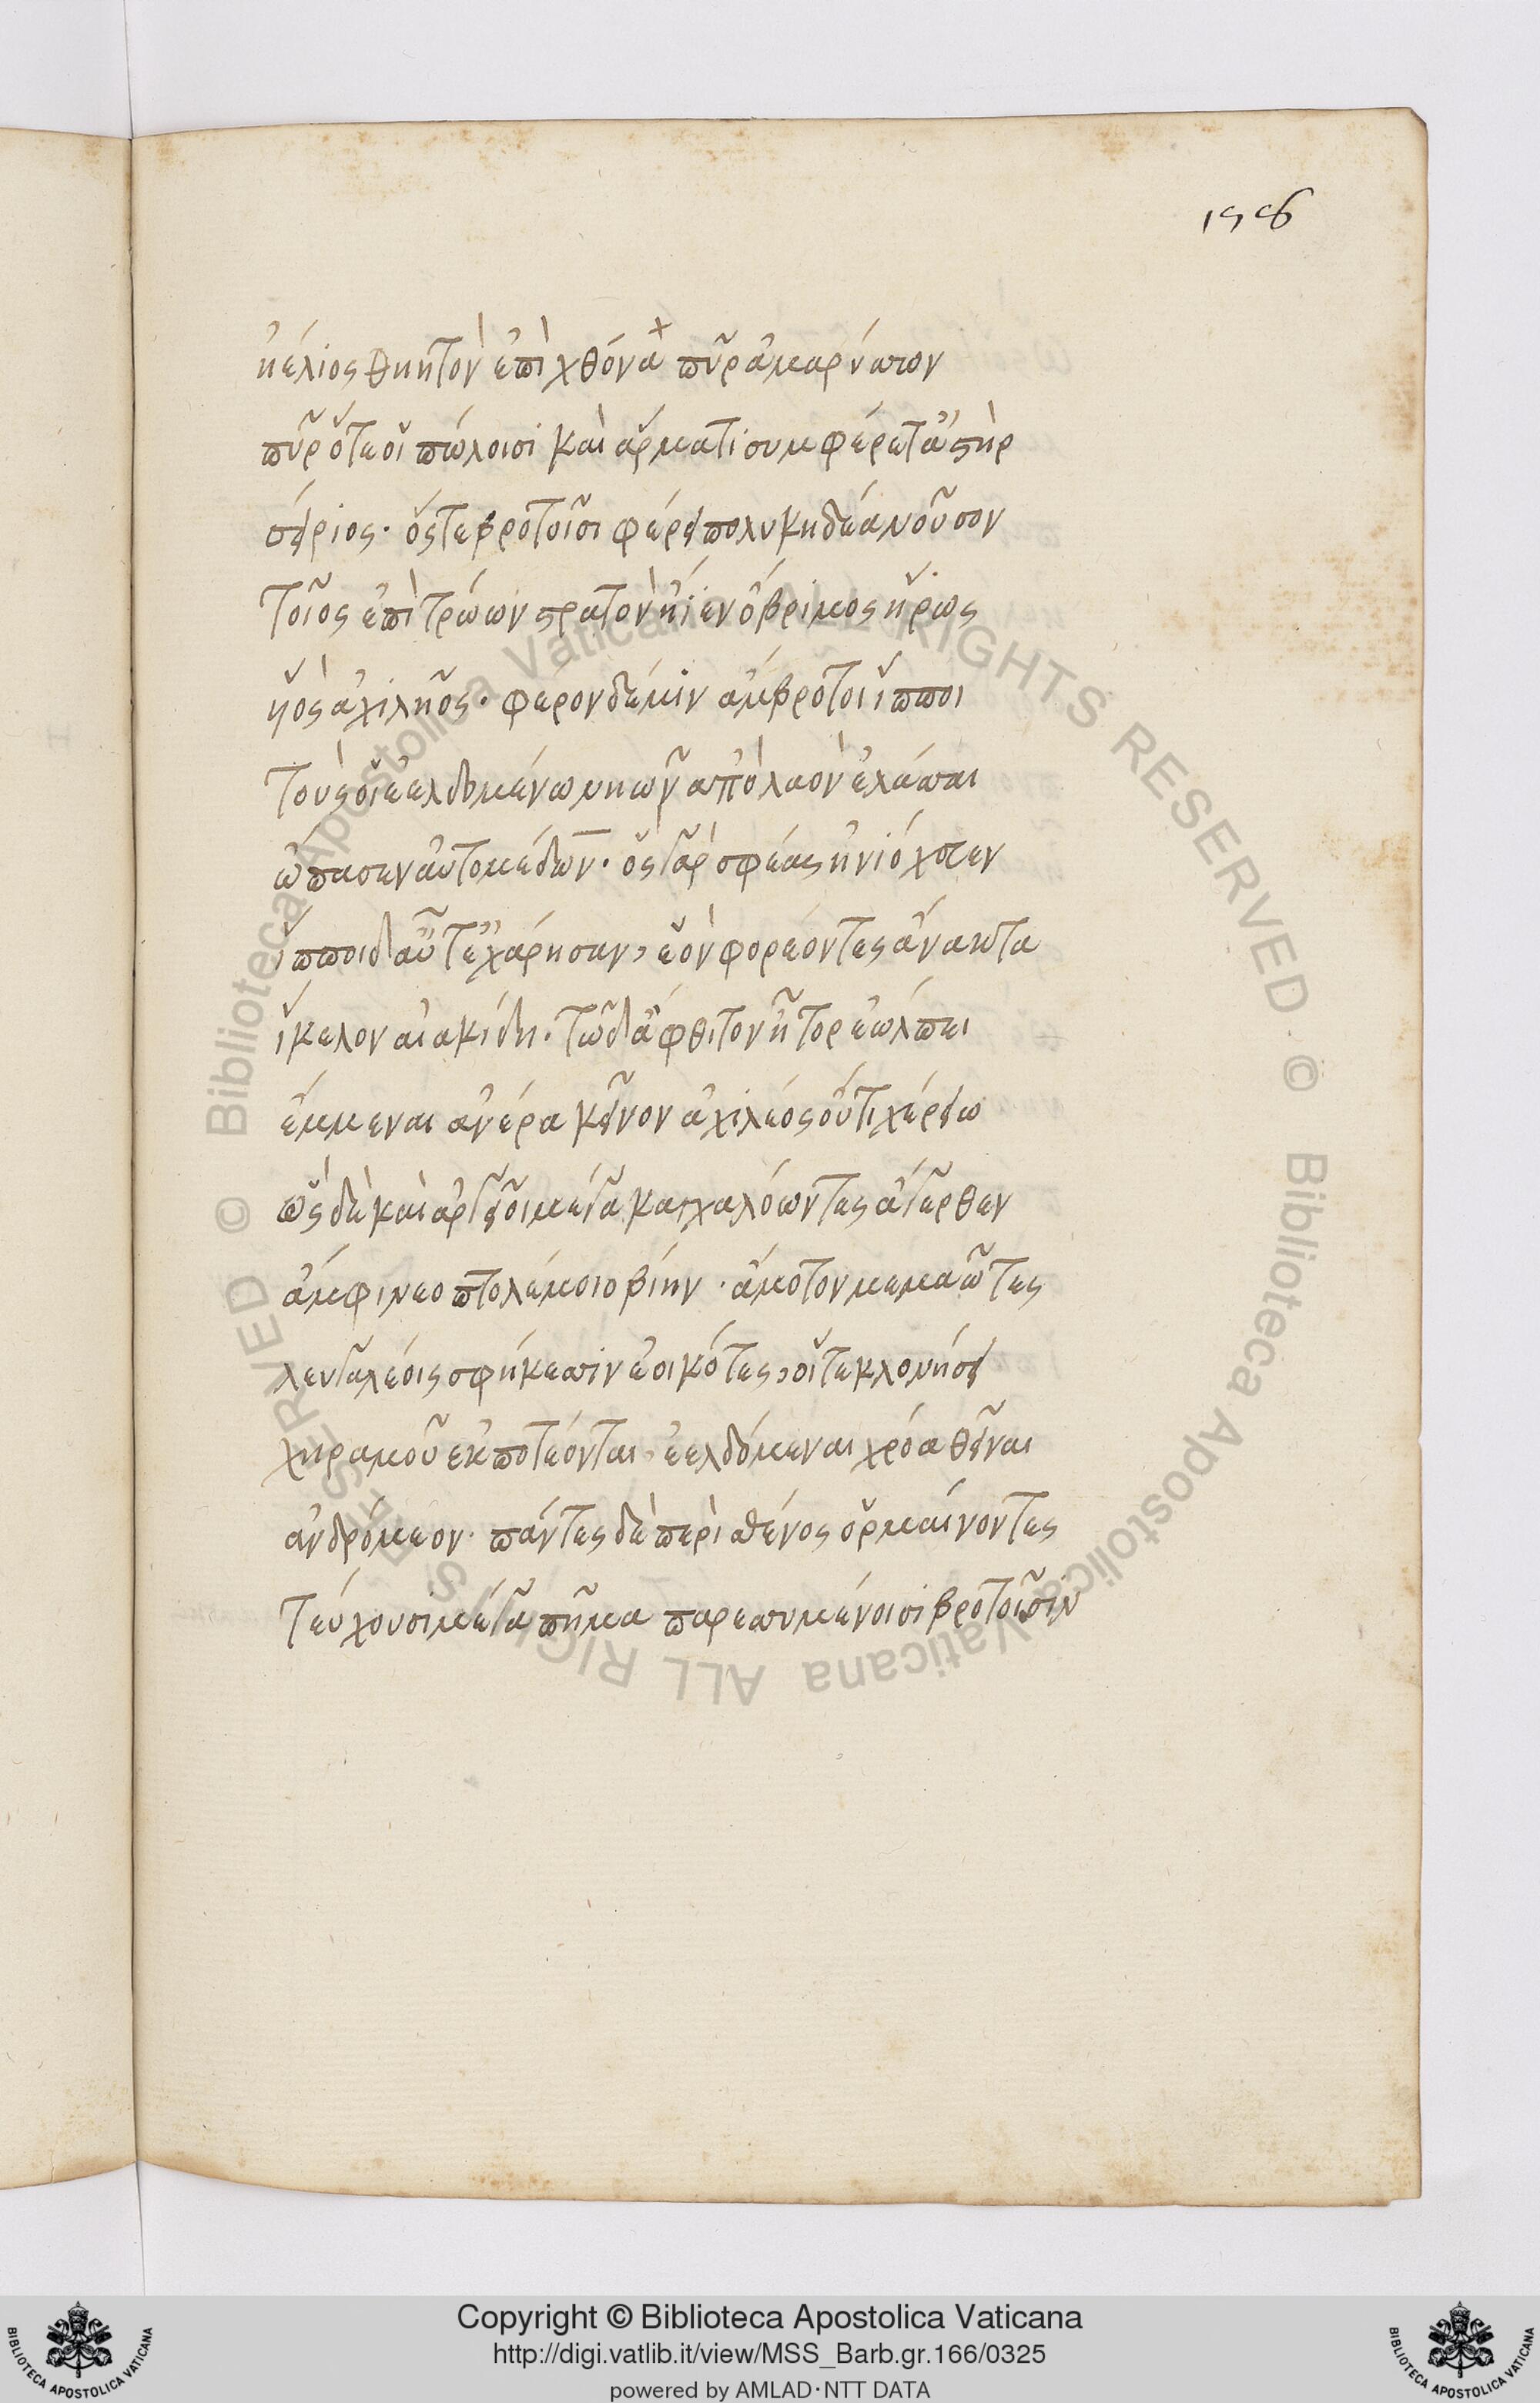 156
ἠέλιος θηητὸν ἐπὶ χθόνα πῦρ ἀμαρύσσων
πῦρ ὅτε οἱ πώλοισι καὶ ἅρματι συμφέρετ' ἀστὴρ
σείριος· ὅστε βροτοῖσι φέρει πολυκηδέα νοῦσον
τοῖος ἐπὶ τρώων στρατὸν ἤϊεν ὄβριμος ἥρως
υἱὸς ἀχιλῆος· φέρον δέ μιν ἄμβροτοι ἵπποι
τοὺς οἱ ἐελδομένω νηῶν ἄπο λαὸν ἐλάσσαι
ὤπασεν αὐτομέδων· ὃς γάρ σφέας ἡνιόχευεν
ἵπποι δ' αὖτ' ἐχάρησαν, ἑὸν φορέοντες ἄνακτα
ἴκελον αἰακίδη· τῶ δ' ἄφθιτον ἦτορ ἐώλπει
ἔμμεναι ἀνέρα κεῖνον ἀχιλέος οὔτι χέρειω
ὣς δὲ καὶ ἀργεῖοι μέγα καγχαλόωντες ἄγερθεν
ἀμφὶ νεοπτολέμοιο βίην· ἄμοτον μεμαῶτες
λευγαλέοις σφήκεσσιν ἐοικότες, οἵ τε κλονήσει
χηραμοῦ ἐκποτέονται ἐελδόμεναι χρόα θεῖναι
ἀνδρόμεον· πάντες δὲ περὶ σθένος ὁρμαίνοντες
τεύχουσι μέγα πῆμα παρεσσυμένοισι βροτοῖσιν
Copyright © Biblioteca Apostolica Vaticana
http://digi.vatlib.it/view/MSS_Barb.gr.166/0325
powered by AMLAD·NTT DATA
BIBLIOTECA APOSTOLICA VATICANA
BIBLIOTECA APOSTOLICA VATICANA
© Biblioteca Apostolica Vaticana ALL RIGHTS RESERVED · © Biblioteca Apostolica Vaticana ALL RIGHTS RESERVED